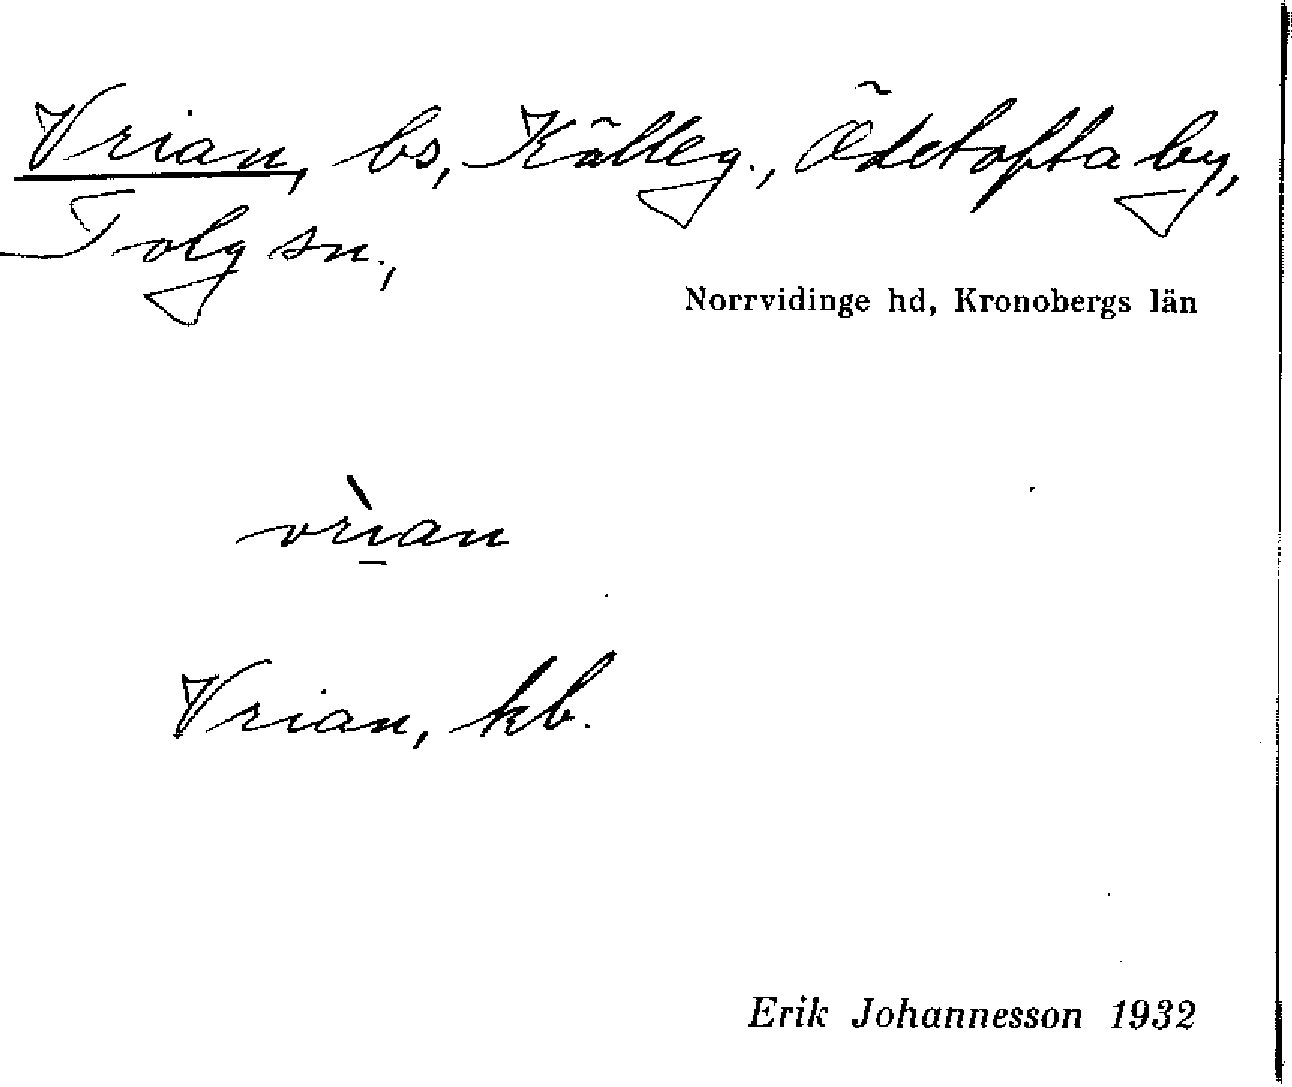 Vrian, bs, Källeg., Ödetofta by,
Tolg sn.,
Norrvidinge hd, Kronobergs län
vrìan
Vrian, kb.
Erik Johannesson 1932